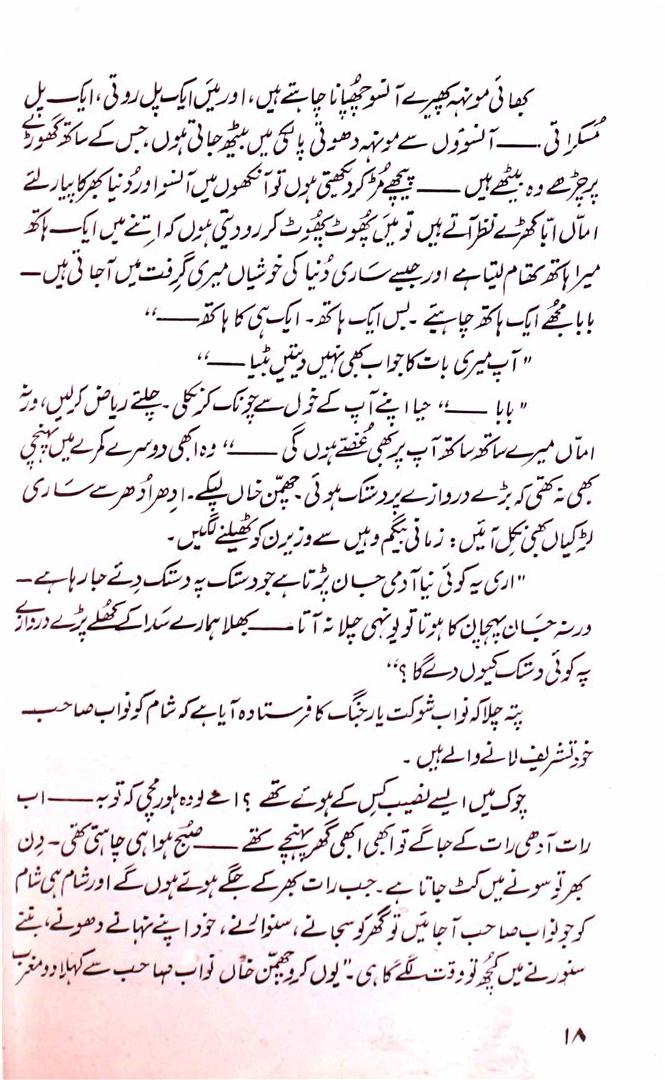 بھائی مونہہ پھیرے آنسو چھپانا چاہتے ہیں، اور میں ایک پل روتی، ایک پل
مُسکراتی —— آنسوؤں سے مونہہ دھوتی پالکی میں بیٹھ جاتی ہوں، جس کے ساتھ گھوڑے
پر چڑھے وہ بیٹھے ہیں —— پیچھے مُڑ کر دیکھتی ہوں تو آنکھوں میں آنسو اور دُنیا بھر کا پیار لئے
امّاں ابّا کھڑے نظر آتے ہیں تو میں پُھوٹ پُھوٹ کر رو دیتی ہوں کہ اِتنے میں ایک ہاتھ
میرا ہاتھ تھام لیتا ہے اور جیسے ساری دُنیا کی خوشیاں میری گرفت میں آ جاتی ہیں —
بابا مجھے ایک ہاتھ چاہئیے ۔ بس ایک ہاتھ۔ ایک ہی کا ہاتھ ——“
"آپ میری بات کا جواب بھی نہیں دیتیں بٹیا ——“
"بابا ——“ حیا اپنے آپ کے خول سے چونک کر نکلی۔ چلئے ریاض کر لیں، ورنہ
امّاں میرے ساتھ ساتھ آپ پر بھی غُصّے ہوں گی ——“ وہ ابھی دوسرے کمرے میں پہنچی
بھی نہ تھی کہ بڑے دروازے پر دستک ہوئی۔ چھمّن خاں لپکے۔ اِدھر اُدھر سے ساری
لڑکیاں بھی نکل آئیں: زمانی بیگم وہیں سے وزیرن کو ٹھیلنے لگیں۔
"اری یہ کوئی نیا آدمی جان پڑتا ہے جو دستک پہ دستک دِئے جا رہا ہے —
ورنہ جان پہچان کا ہوتا تو یونہی چلا نہ آتا —— بھلا ہمارے سَدا کے کُھلے پڑے دروازے
پہ کوئی دستک کیوں دے گا؟“
پتہ چلا کہ نواب شوکت یار جنگ کا فرستادہ آیا ہے کہ شام کو نواب صاحب
خود تشریف لانے والے ہیں ۔
چوک میں ایسے نصیب کِس کے ہوئے تھے؟ اے لو وہ ہلور مچی کہ توبہ —— اب
رات آدھی رات کے جاگے تو ابھی ابھی گھر پہنچے تھے —— صُبح ہوا ہی چاہتی تھی۔ دِن
بھر تو سونے میں کٹ جاتا ہے۔ جب رات بھر کے جگے ہوئے ہوں گے اور شام ہی شام
کو جو نواب صاحب آ جائیں تو گھر کو سجانے، سنوارنے، خود اپنے نہانے دھونے، بننے
سنورنے میں کچُھ تو وقت لگے گا ہی۔ "یوں کرو چھمّن خاں نواب صاحب سے کہلا دو مغرب
۱۸